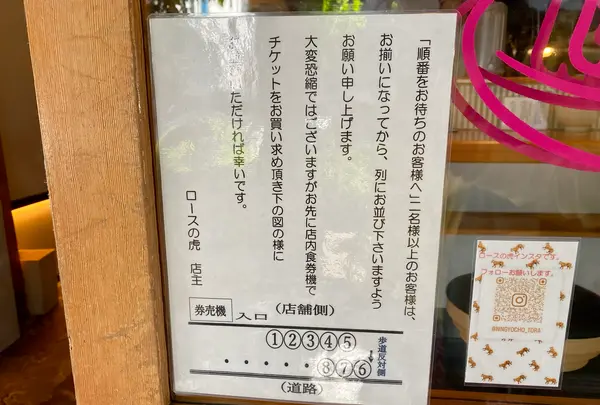 「順番をお待ちのお客様へ」二名様以上のお客様は、
お揃いになってから、列にお並び下さいますよう
お願い申し上げます。
大変恐縮ではございますがお先に店内食券機で
チケットをお買い求め頂き下の図の様に
ただければ幸いです。
ロースの虎 店主
券売機 入口 (店舗側)
①②③④⑤
歩道反対側
・・・・・⑧⑦⑥
(道路)
ロースの虎インスタです。
フォローお願いします。
@NINGYOCHO_TORA